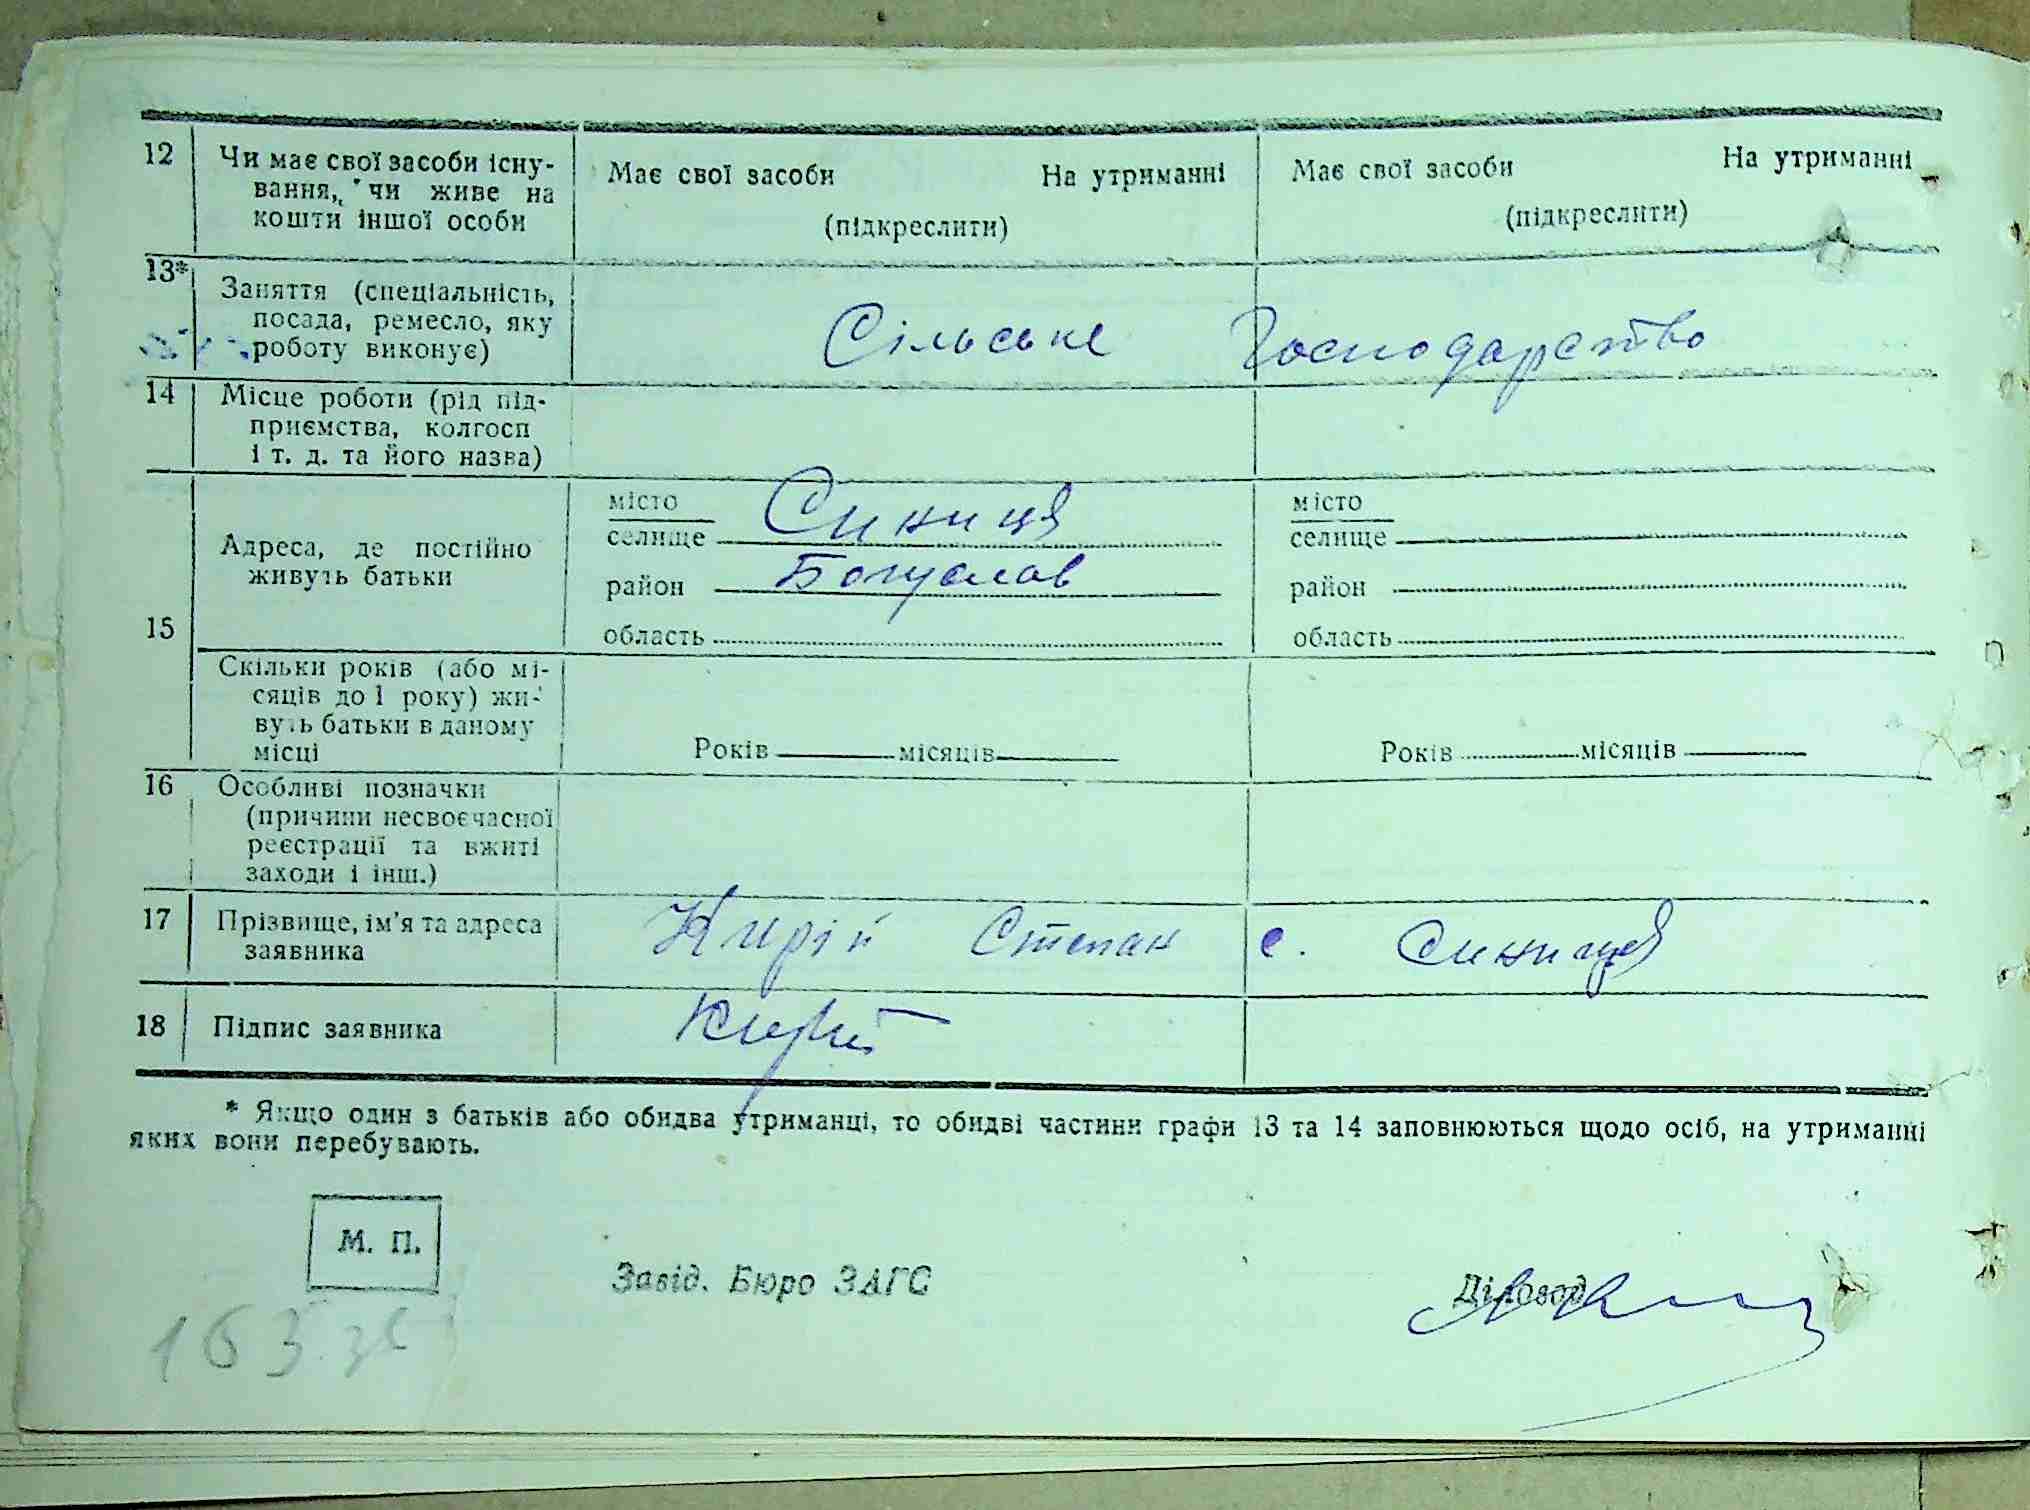 12 Чи має свої засоби існу-
вання, чи живе на
кошти іншої особи
Має свої засоби На утриманні
(підкреслити)
Має свої засоби На утриманні
(підкреслити)
13* Заняття (спеціальність,
посада, ремесло, яку
роботу виконує)
Сільське Господарство
14 Місце роботи (рід під-
приємства, колгосп
і т. д. та його назва)
15 Адреса, де постійно
живуть батьки
місто
селище Синиця
район Богуслав
область
місто
селище
район
область
Скільки років (або мі-
сяців до 1 року) жи-
вуть батьки в даному
місці
Років місяців
Років місяців
16 Особливі позначки
(причини несвоєчасної
реєстрації та вжиті
заходи і інш.)
17 Прізвище, ім'я та адреса
заявника
Кирій Степан с. Синиця
18 Підпис заявника
Кирій
* Якщо один з батьків або обидва утриманці, то обидві частини графи 13 та 14 заповнюються щодо осіб, на утриманні
яких вони перебувають.
М. П.
Завід. Бюро ЗАГС
Діловод